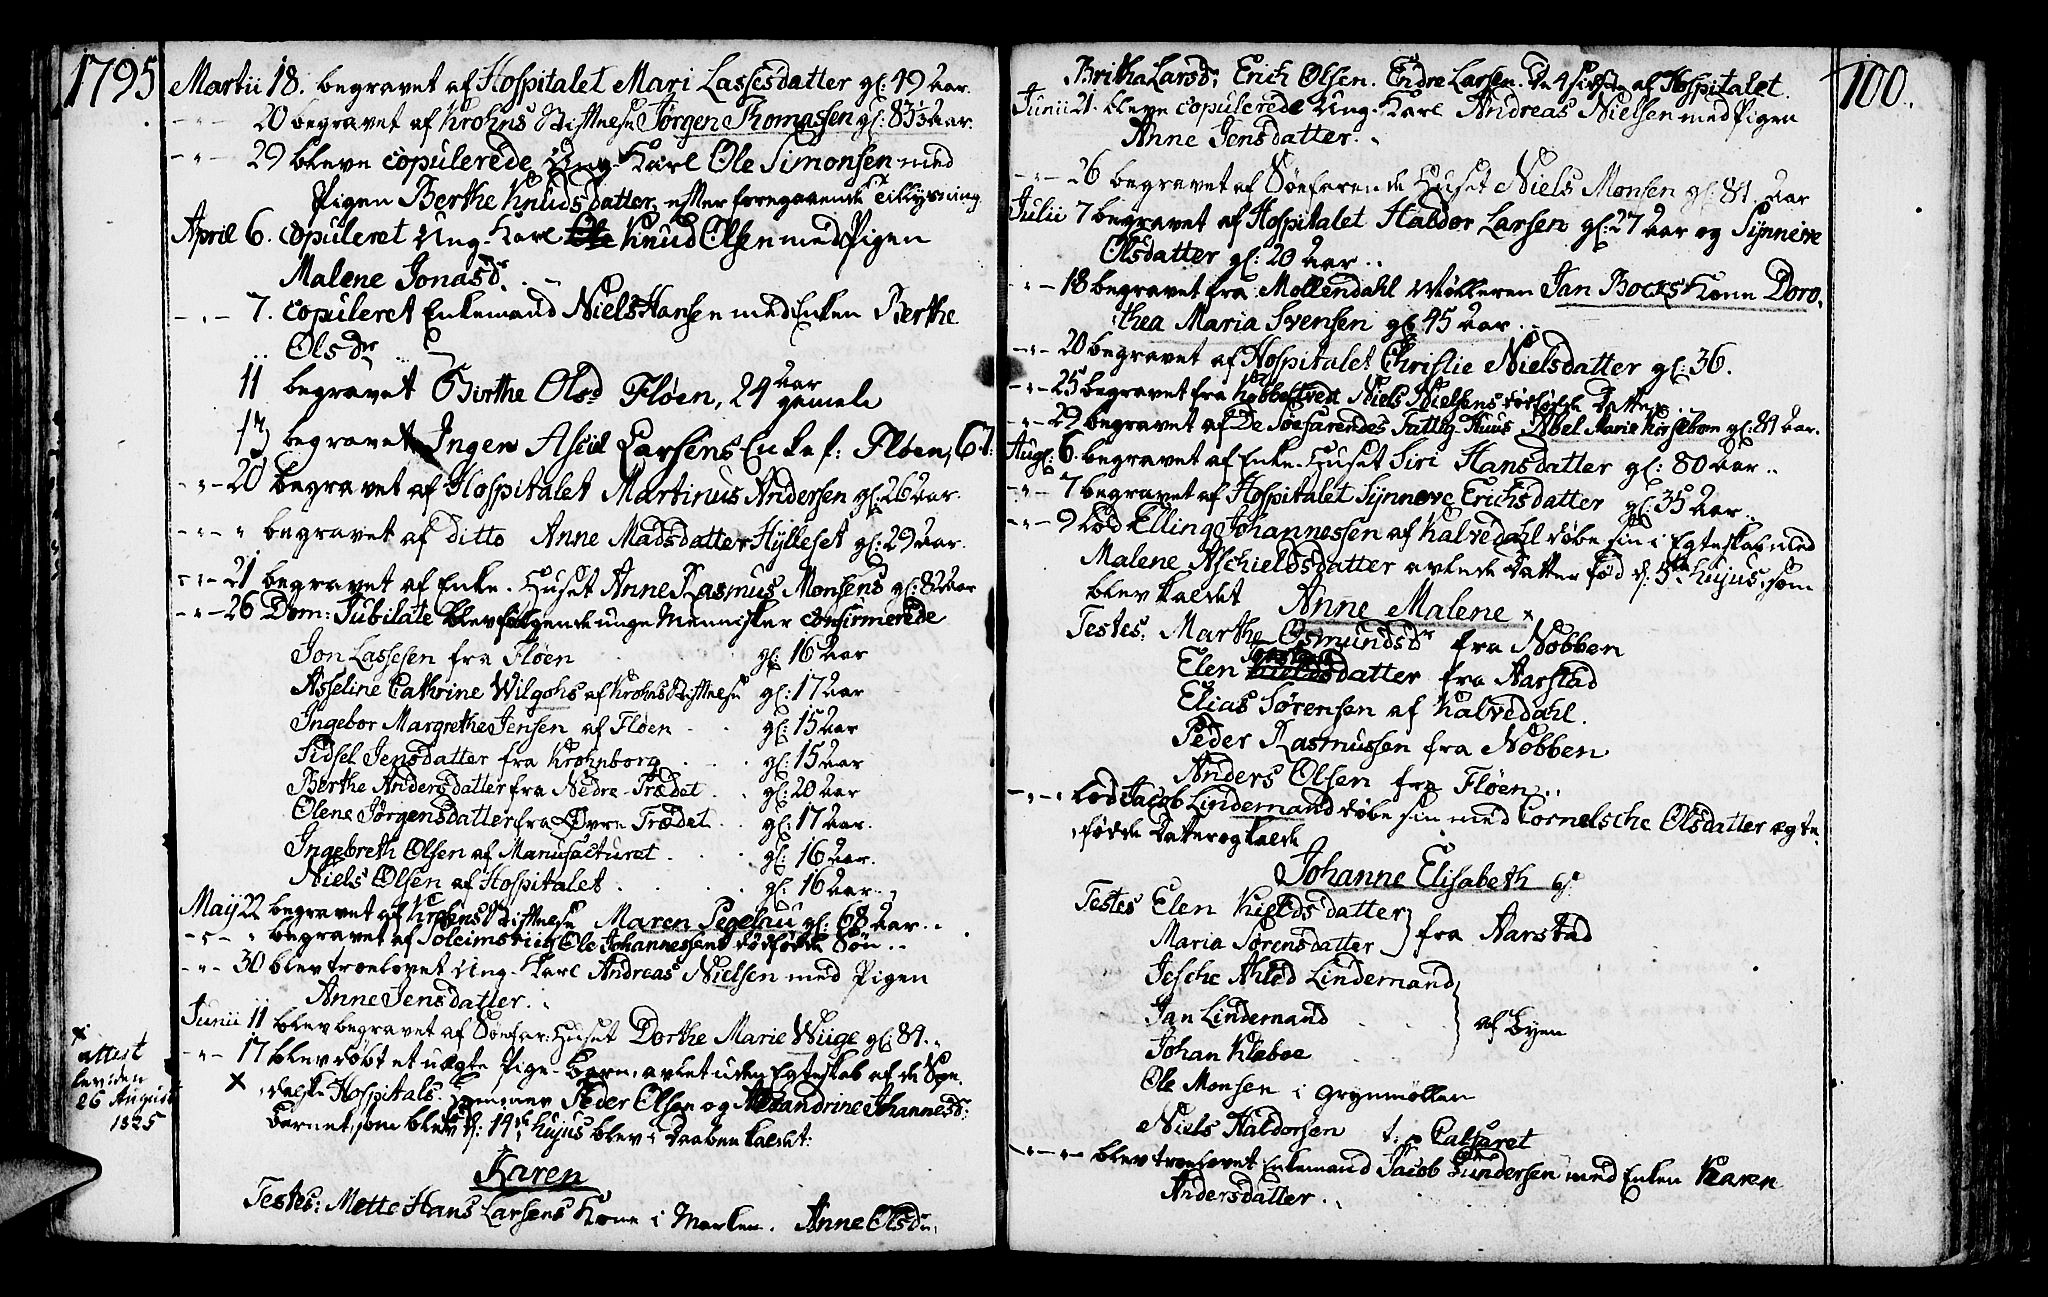 1795
Martii 18. begravet af Hospitalet Mari Lassesdatter gl: 49 Aar.
- " - 20 begravet af Krohns Stiftelse Jørgen Thomassen gl: 83½ Aar.
- " - 29 bleve copulerede Ung-Karl Ole Simonsen med
Pigen Berthe Knudsdatter, efter foregaaende Tillysning
April 6. copuleret Ung-Karl Knud Olsen med Pigen
Malene Jonasdr.
- " - 7. copuleret Enkemand Niels Hansen med Enken Berthe
Olsdr
11 begravet Birthe Olsd Fløen, 24 aar gamele
13 begravet Ingen Larsens Enke f: Fløen, 67.
- " - 20 begravet af Hospitalet Martinus Andersen gl: 26 Aar.
- " - " begravet af ditto Anne Madsdatter Hylleset gl: 29 Aar.
- " - 21 begravet af Enke-Huset Anne Rasmus Monsens gl: 82 Aar
- " - 26 Dom: Jubilate blev følgende unge Mennisker confirmerede
Jon Lassesen fra Fløen gl: 16 Aar
Asseline Cathrine Wilgohs af Krohns Stiftelse gl: 17 Aar
Ingebor Margrethe Jensen af Fløen gl: 15 Aar
Sidsel Jensdatter fra Krohnborg gl: 15 Aar
Berthe Andersdatter fra Nedre-Trædet gl: 20 Aar
Olene Jørgensdatter fra Øvre Trædet gl: 17 Aar.
Ingebreth Olsen af Manufacturet gl: 16 Aar.
Niels Olsen af Hospitalet gl: 16 Aar.
Maij 22 begravet af Krohns Stiftelse Maren Segelau gl: 68 Aar.
- " - " begravet af Soleimsviig Ole Johannessens dødfødde Søn.
- " - 30 blev troelovet Ung-Karl Andreas Nielsen med Pigen
Anne Jensdatter.
Junii 11 blev begravet af Søefar: Huset Dorthe Marie Wiige gl: 84.
- " - 17 blev døbt et uægte Pige-Barn, avlet uden Egteskab af de Spe-
x dalske Hospitals-Lemmer Peder Olsen og Alexandrine Johannesd:
Barnet, som blev d: 14de hujus blev i Daaben kaldet:
Karen
Testes: Mette Hans Larsens Kone i Marken. Anne Olsdr,
x
attest
lev: den
26 August
1825
100.
Britha Larsd: Erich Olsen. Endre Larsen. De 4 sidste af Hospitalet.
Junii 21. bleve copulerede Ung-Karl Andreas Nielsen med Pigen
Anne Jensdatter.
- " - 26 begravet af Søefarende Huset Niels Monsen gl: 81 Aar
Julii 7 begravet af Hospitalet Haldor Larsen gl: 27 Aar og Synneve
Olsdatter gl: 20 Aar.
- " - 18 begravet fra Møllendahl Mølleren Jan Bocks Kone Doro-
thea Maria Svensen gl: 45 Aar.
- " - 20 begravet af Hospitalet Christie Nielsdatter gl: 36.
- " - 25 begravet fra Kobbeltvedt Niels Nielsens dødfødde Datter
- " - 29 begravet af De Søefarendes Fattig-Huus Abel Marie Korsebom gl: 84 Aar.
Augl: 6. begravet af Enke-Huset Siri Hansdatter gl: 80 Aar.
- " - 7 begravet af Hospitalet Synnove Erichsdatter gl: 35 Aar.
- " - 9 lod Elling Johannessen af Kalvedahl døbe sin i Egteskab med
Malene Aschieldsdatter avlede Datter fød d: 5te hujus, som
blev kaldet Anne Malene x
Testes: Marthe Osmundsdr fra Nobben
Elen datter fra Aarstad
Elias Sørensen af Kalvedahl.
Peder Rasmussen fra Nobben
Anders Olsen fra Fløen.
- " - " lod Jacob Lindemand døbe sin med Cornelsche Olsdatter ægte-
fødde Datter og kalde
Johanne Elisabeth
Testes Elen Kieldsdatter
Maria Sørensdatter } fra Aarstad
Jesche Lindemand
Jan Lindemand
Johan Klæboe } af Byen
Ole Monsen i Grynmøllen
Niels Haldorsen
- " - " blev troelovet Enkemand Jacob Gundersen med Enken Karen
Andersdatter.